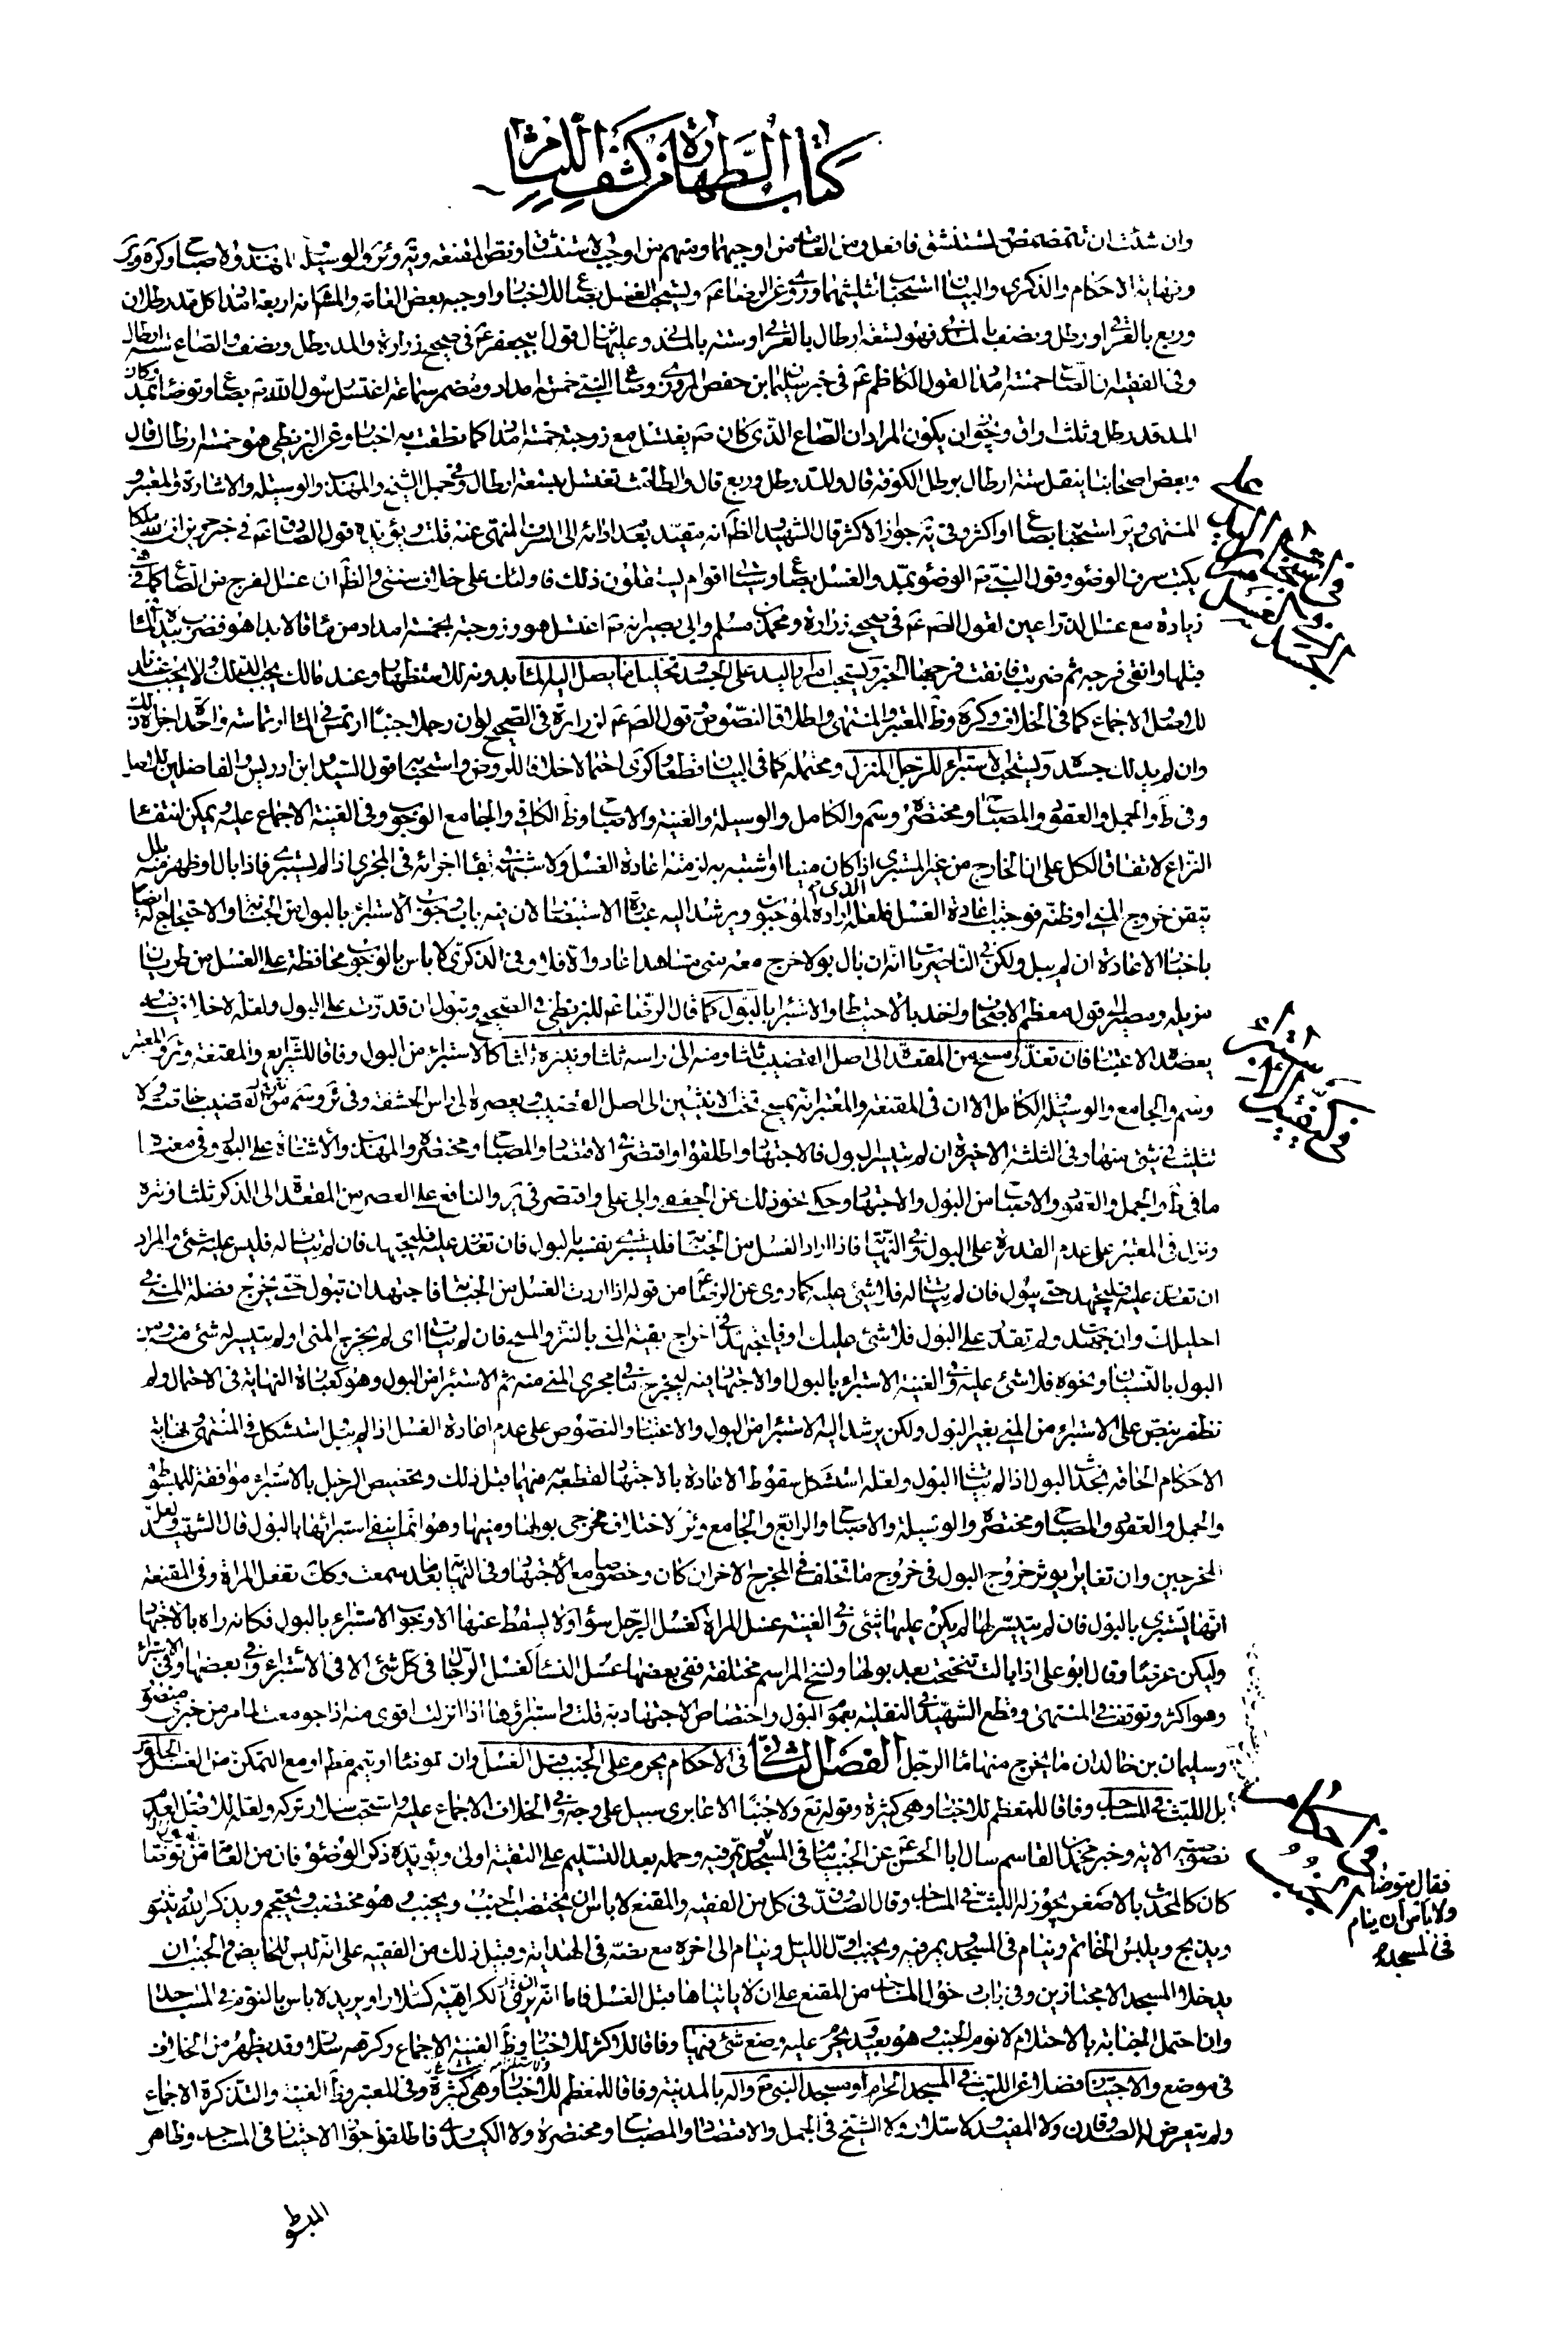 كتاب الطهارة من كشف اللثام
وان شئت ان تتمضمض وتستنشق فافعل ومن العامة من اوجبهما ومنهم من اوجب الاستنشاق ونص المقنعة
ونهاية الاحكام والذكرى والبيان استحباب تثليثهما وروى عن الرضا عم ويستحب الغسل بصاع للاخبار واوجبه بعض العامة والصاع اربعة امداد كل مد رطلان
وربع بالعراقى او رطل ونصف بالمدنى فهو تسعة ارطال بالعراقى او ستة بالمدنى وعليه قول ابيجعفر عم فى صحيح زرارة والمد رطل ونصف والصاع ستة ارطال
وفى الفقيه ان الصاع خمسة امداد لقول الكاظم عم فى خبر سليمان بن حفص المروزى وصاع النبى خمسة امداد ومضمر سماعة اغتسل رسول الله ص بصاع وتوضأ بمد وكان
المد قدر رطل وثلث اواق ويجوز ان يكون المراد ان الصاع الذى كان ص يغتسل مع زوجته خمسة امداد كما نطقت به اخبار وعن البزنطى هو خمسة ارطال قال
وبعض اصحابنا ينقل ستة ارطال برطل الكوفة قال والمد رطل وربع قال والطامث تغتسل بتسعة ارطال وفى جمل الشيخ والمهذب والوسيلة والاشارة والمعتبر و
المنتهى استحبابه بصاع او اكثر وفى جواز الاكثر قال الشهيد والظاهر انه مقيد بعدم ادائه الى السرف المنهى عنه قلت ويؤيده قول الصادق عم فى خبر حريز ان لله ملكا
يكتب سرف الوضوء وقول النبى ص الوضوء بمد والغسل بصاع وسيأتى اقوام يستقلون ذلك فاولئك على خلاف سنتى والظاهر ان غسل الفرج من الصاع كما فى
زيادة مع غسل الذراعين لقول الصم عم فى صحيح زرارة ومحمد بن مسلم وابى بصير انه ص اغتسل هو وزوجته بخمسة امداد من اناء قال بدأ هو فضرب بيده الماء
قبلها وانقى فرجه ثم ضربت فانقت فرجها الخبر ويستحب امرار اليد على الجسد وتخليل ما يصل اليه الماء بدونه للاستظهار وعند مالك يجب الدلك ولا يجب عندنا
للاصل والاجماع كما فى الخلاف والتذكرة وظاهر المعتبر والمنتهى واطلاق النصوص وقول الصم عم لزرارة فى الصحيح لو ان رجلا جنبا ارتمس فى الماء ارتماسة واحدة اجزأه ذلك
وان لم يدلك جسده ويستحب الاستبراء للرجل المنزل ومحتمله كما فى البيان وقطع الذكرى احتمالا خلافا للروض واستحبابه قول السيد وابن ادريس والفاضلين للاصل
وفى ط والجمل والعقود والمصباح ومختصره وسم والكامل والوسيلة والغنية والاصباح وظاهر الكافى والجامع الوجوب وفى الغنية الاجماع عليه ويمكن انتفاء
النزاع لاتفاق الكل على ان الخارج من غير المستبرى اذا كان منيا او اشتبه به لزمه اعادة الغسل ولا شبهة فى بقاء اجزائه فى المجرى اذا لم يستبر فاذا بال او ظهر منه بلل
تيقن خروج المنى او ظنه فوجب اعادة الغسل فلعله الذى اراده الموجبون ويرشد اليه عبارة الاستبصار لان فيه باب وجوب الاستبراء بالبول من الجنابة والاحتجاج له ايضا
باخبار الاعادة ان لم يبل ولكن فى الناصريات انه ان بال بولا خرج معه منى شاهده اعاد والا فلا وفى الذكرى لا باس بالوجوب محافظة على الغسل من طريان
مزيله ومصيرا الى قول معظم الاصحاب واخذا بالاحتياط والاستبراء بالبول كما قال الرضا عم للبزنطى فى الصحيح وتبول ان قدرت على البول ولعله لا خلاف فيه
يعضده الاعتبار فان تعذر مسح من المقعدة الى اصل القضيب ثلثا ومنه الى راسه ثلثا وينتره ثلثا كالاستبراء من البول وفاقا للشرايع والمقنعة والمعتبر
وسم والجامع والوسيلة والكامل الا ان فى المقنعة والمعتبر انه يمسح تحت الانثيين الى اصل القضيب ويعصره الى راس الحشفة وفى نتر القضيب خاصة ولا
تثليث فى شئ منها وفى الثلثة الاخيرة ان لم يتيسر البول فالاجتهاد واطلقوا واقتصر فى الاقتصاد والمصباح ومختصره والمهذب والاشارة على البول وفى معناه
ما فى ط والجمل والعقود والاصباح من البول والاجتهاد وحكى نحو ذلك عن الجعفى وابى على واقتصر فى والنافع على العصر من المقعدة الى الذكر ثلثا ونتره
ونزل فى المعتبر على عدم القدرة على البول وفى النهاية فاذا اراد الغسل من الجنابة فليستبرئ نفسه بالبول فان تعذر عليه فليجتهد فان لم يتأت له فليس عليه شئ والمراد
ان تعذر عليه فليجتهد حتى يبول فان لم يتأت له فلا شئ عليه كما روى عن الرضا عم من قوله اذا اردت الغسل من الجنابة فاجتهد ان تبول حتى تخرج فضلة المنى فى
احليلك وان جهدت ولم تقدر على البول فلا شئ عليك او فليجتهد فى اخراج بقية المنى بالنتر والمسح فان لم يتأت اى لم يخرج المنى او لم يتيسر له شئ منه ومن
البول بالنسيان ونحوه فلا شئ عليه وفى الغنية الاستبراء بالبول والاجتهاد فيه ليخرج ما فى مجرى المنى منه ثم الاستبراء من البول وهو كعبارة النهاية فى الاحتمال ولم
نظفر بنص على الاستبراء من المنى بغير البول ولكن يرشد اليه الاستبراء من البول والاعتبار والنصوص على عدم اعادة الغسل اذا لم يبل استشكل فى المنتهى ونهاية
الاحكام الحاقه بحدث البول اذا لم يتأت البول ولعله استشكل سقوط الاعادة بالاجتهاد لقطعه بهما قبل ذلك وتخصيص الرجل بالاستبراء موافقة للمبسوط
والجمل والعقود والمصباح ومختصره والوسيلة والاصباح والسرائر والجامع لاختلاف مخرجى بولها ومنيها وهو انما ينفى استبرائها بالبول قال الشهيد ولعل
المخرجين وان تغايرا يؤثر خروج البول فى خروج ما تخلف فى المخرج الاخر ان كان وخصوصا مع الاجتهاد وفى النهاية بعد ما سمعت وكذلك تفعل المراة وفى المقنعة
انها تستبرى بالبول فان لم يتيسر لها لم يكن عليها شئ وفى الغنية غسل المراة كغسل الرجل سواء ولا يسقط عنها الا وجوب الاستبراء بالبول فكانه راه بالاجتهاد
وليكن عرضا وقال ابو على اذا بالت تنحنحت بعد بولها ونسخ المراسم مختلفة ففى بعضها غسل النساء كغسل الرجال فى كل شئ الا فى الاستبراء وفى بعضها وفى الاستبراء
وهو اكثر وتوقف فى المنتهى وقطع الشهيد فى النفلية بعموم البول واختصاص الاجتهاد به قلت فاستبراؤها اذا انزلت اقوى منه اذا جومعت لما مر من خبرى منصور
وسليمان بن خالد ان ما يخرج منها ماء الرجل الفصل الثانى فى الاحكام يحرم على الجنب قبل الغسل وان توضأ او تيمم فظاهرا مع التمكن من الغسل الجلوس
بل اللبث فى المساجد وفاقا للمعظم للاخبار وهى كثيرة وقوله تع ولا جنبا الا عابرى سبيل على وجه وفى الخلاف الاجماع عليه واستحب سلار تركه ولعله للاصل وعدم
نصوصية الاية وخبر محمد بن القاسم سال ابا الحسن عم عن الجنب ينام فى المسجد ويمر فيه وحمله بعد التسليم على التقية اولى ويؤيده ذكر الوضوء فان من العامة من توضأ
كان كالمحدث بالاصغر يجوز له اللبث فى المساجد وقال الصدوق فى كل من الفقيه والمقنع لا باس ان يختضب الجنب ويجنب وهو مختضب ويحتجم ويذكر الله ويتنور
ويذبح ويلبس الخاتم وينام فى المسجد ويمر فيه ويجنب اول الليل وينام الى اخره مع نصه فى الهداية وقبيل ذلك من الفقيه على انه ليس للحايض والجنب ان
يدخلا المسجد الا مجتازين وفى باب دخول المساجد من المقنع على ان لا ياتيها قبل الغسل فاما انه يرى الكراهية كسلار او يريد لا باس بالنوم فى المساجد
وان احتمل الجنابة بالاحتلام لا نوم الجنب وهو بعيد ويحرم عليه وضع شئ فيها وفاقا للاكثر للاخبار وظاهر الغنية الاجماع وكرهه سلار وقد يظهر من الخلاف
فى موضع والاجتياز فضلا عن اللبث فى المسجد الحرام او مسجد النبى ص واله بالمدينة وفاقا للمعظم للاخبار وهى كثيرة وفى المعتبر وظاهر الغنية والتذكرة الاجماع
ولم يتعرض له الصدوقان ولا المفيد ولا سلار ولا الشيخ فى الجمل والاقتصاد والمصباح ومختصره ولا الكيدرى فاطلقوا جواز الاجتياز فى المساجد وظاهر
المبسوط
فى الاستبراء
فى احكام الجنب
فقال يتوضأ
ولا باس ان ينام
فى المسجد